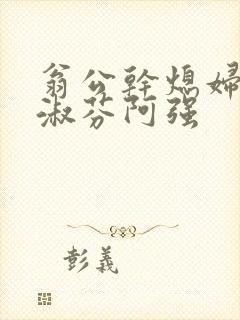 翁公幹熄婦
淑芬阿强
彭義